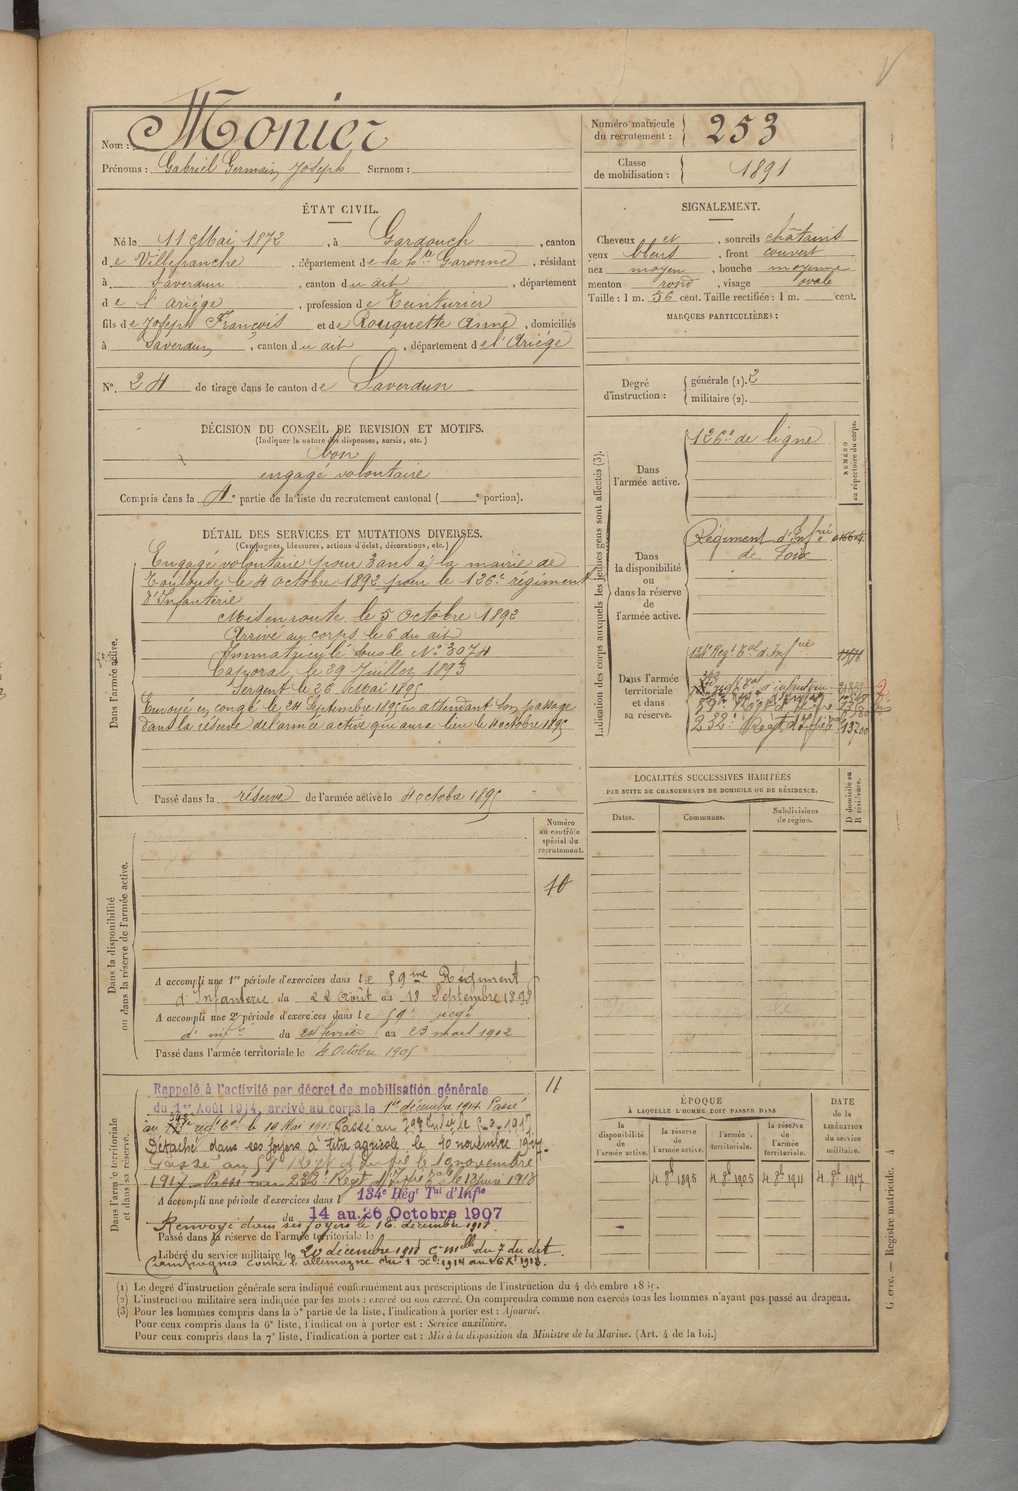 Nom : Monier
Prénoms : Gabriel Germain Joseph Surnom :
Numéro matricule du recrutement : 253
Classe de mobilisation : 1891
ÉTAT CIVIL.
Né le 11 Mai 1872, à Gardouch, canton
de Villefranche, département de la hte Garonne, résidant
à Saverdun, canton du dit, département
de l'ariège, profession de Teinturier
fils de Joseph François et de Rouquette Anne, domiciliés
à Saverdun, canton du dit, département de l'Ariège
No. 24 de tirage dans le canton de Saverdun
SIGNALEMENT.
Cheveux et, sourcils châtains
yeux bleus, front couvert
nez moyen, bouche moyenne
menton rond, visage ovale
Taille : 1 m. 56 cent. Taille rectifiée : 1 m. cent.
MARQUES PARTICULIÈRES :
Degré d'instruction : générale (1). 2
militaire (2).
DÉCISION DU CONSEIL DE REVISION ET MOTIFS.
(Indiquer la nature des dispenses, sursis, etc.)
bon
engagé volontaire
Compris dans la 4e partie de la liste du recrutement cantonal ( e portion).
DÉTAIL DES SERVICES ET MUTATIONS DIVERSES.
(Campagnes, blessures, actions d'éclat, décorations, etc.)
Dans l'armée active.
Engagé volontaire pour 3 ans à la mairie de
Toulouse le 4 octobre 1892 pour le 126e régiment
d'Infanterie
Mis en route le 5 Octobre 1892
Arrivé au corps le 6 du dit
Immatriculé sous le No 3074
Caporal le 29 Juillet 1893
Sergent le 26 Mai 1895
Envoyé en congé le 24 Septembre 1895 en attendant son passage
dans la réserve de l'armée active qui aura lieu le 4 octobre 1895
Passé dans la réserve de l'armée active le 4 octobre 1895
Indication des corps auxquels les jeunes gens sont affectés (3).
Dans l'armée active. 126e de ligne
NUMÉRO au répertoire du corps.
Dans la disponibilité ou dans la réserve de l'armée active. Régiment d'Infrie
de Foix
Dans l'armée territoriale et dans sa réserve. 134e Regt Tal d'Infrie
232e Regt d'Infie 13700
LOCALITÉS SUCCESSIVES HABITÉES
PAR SUITE DE CHANGEMENTS DE DOMICILE OU DE RÉSIDENCE.
Dates. Communes. Subdivisions de région. D domicile ou R résidence.
Dans la disponibilité ou dans la réserve de l'armée active.
Numéro au contrôle spécial du recrutement.
40
A accompli une 1re période d'exercices dans le 59me Régiment
d'Infanterie du 22 Août au 18 Septembre 1898
A accompli une 2e période d'exercices dans le 59e regt
d'infie du 24 février au 23 mars 1902
Passé dans l'armée territoriale le 4 Octobre 1905
Dans l'armée territoriale et dans sa réserve.
11
Rappelé à l'activité par décret de mobilisation générale
du 1er Août 1914, arrivé au corps le 1er décembre 1914. Passé
Détaché dans ses foyers à titre agricole le 10 novembre 1917.
Passé au 59e Regt d'Infie le 10 novembre
1917. Passé au 232e Regt d'Infie le 13 juin 1918
A accompli une période d'exercices dans l 134e Régt Tal d'Infie
du 14 au 26 Octobre 1907
Renvoyé dans ses foyers le 16 décembre 1918.
Passé dans la réserve de l'armée territoriale le
Libéré du service militaire le 20 décembre 1918 c-melle du 7 du dit.
Campagnes contre l'allemagne du 1 Xbre 1914 au 16 Xbre 1918.
ÉPOQUE
À LAQUELLE L'HOMME DOIT PASSER DANS
la disponibilité de l'armée active. la réserve de l'armée active. l'armée territoriale. la réserve de l'armée territoriale.
DATE de la LIBÉRATION du service militaire.
4 8bre 1895 4 8bre 1905 4 8bre 1911 4 8bre 1917
(1) Le degré d'instruction générale sera indiqué conformément aux prescriptions de l'instruction du 4 décembre 18
(2) L'instruction militaire sera indiquée par les mots : exercé ou non exercé. On comprendra comme non exercés tous les hommes n'ayant pas passé au drapeau.
(3) Pour les hommes compris dans la 5e partie de la liste, l'indication à porter est : Ajourné.
Pour ceux compris dans la 6e liste, l'indication à porter est : Service auxiliaire.
Pour ceux compris dans la 7e liste, l'indication à porter est : Mis à la disposition du Ministre de la Marine. (Art. 4 de la loi.)
Guerre. — Registre matricule. 4